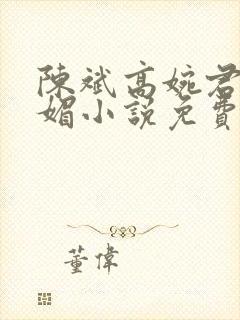 陳斌高婉君
媚小說免費
董偉